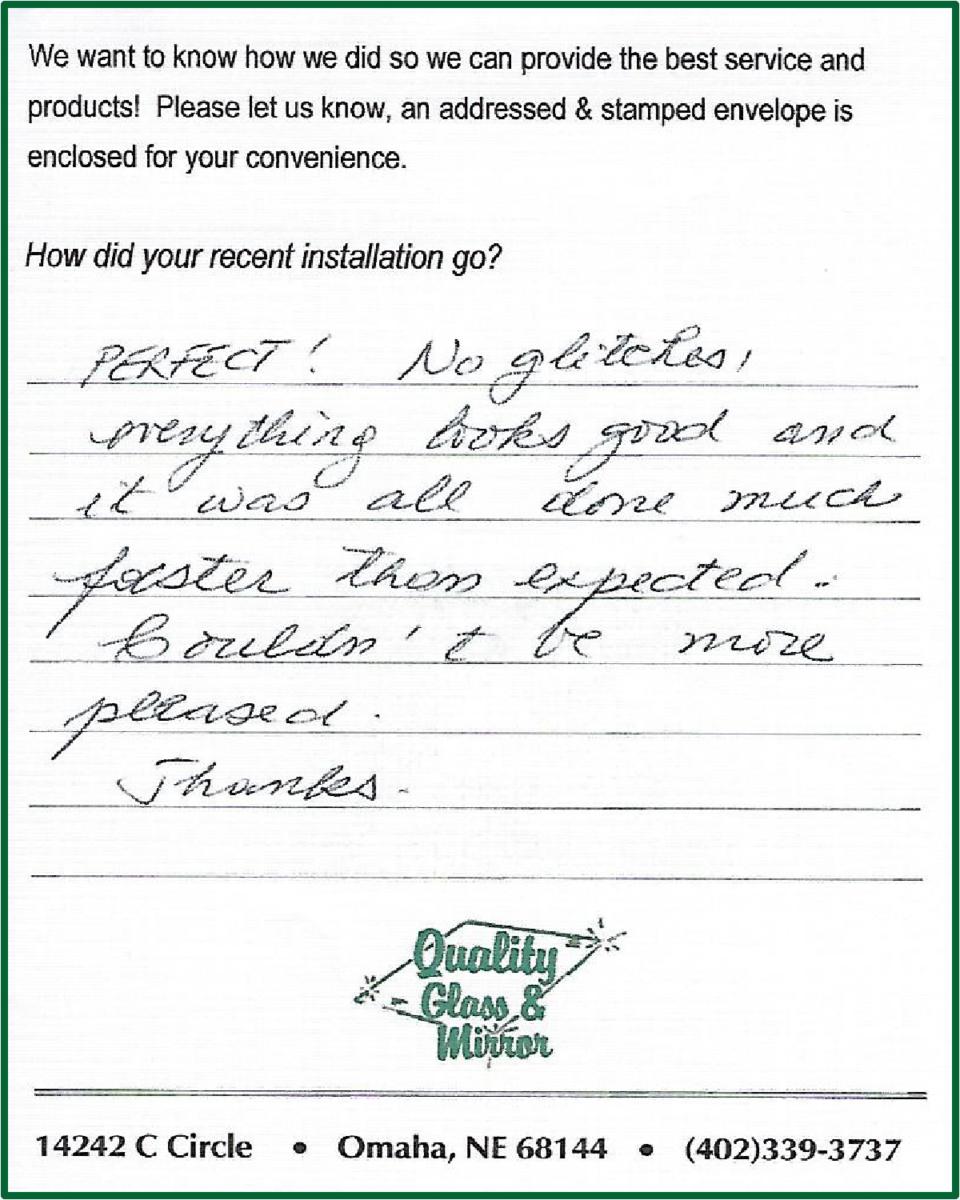 We want to know how we did so we can provide the best service and
products! Please let us know, an addressed & stamped envelope is
enclosed for your convenience.
How did your recent installation go?
PERFECT! No glitches,
everything looks good and
it was all done much
faster than expected.
Couldn't be more
pleased.
Thanks.
Quality
Glass &
Mirror
14242 C Circle • Omaha, NE 68144 • (402)339-3737